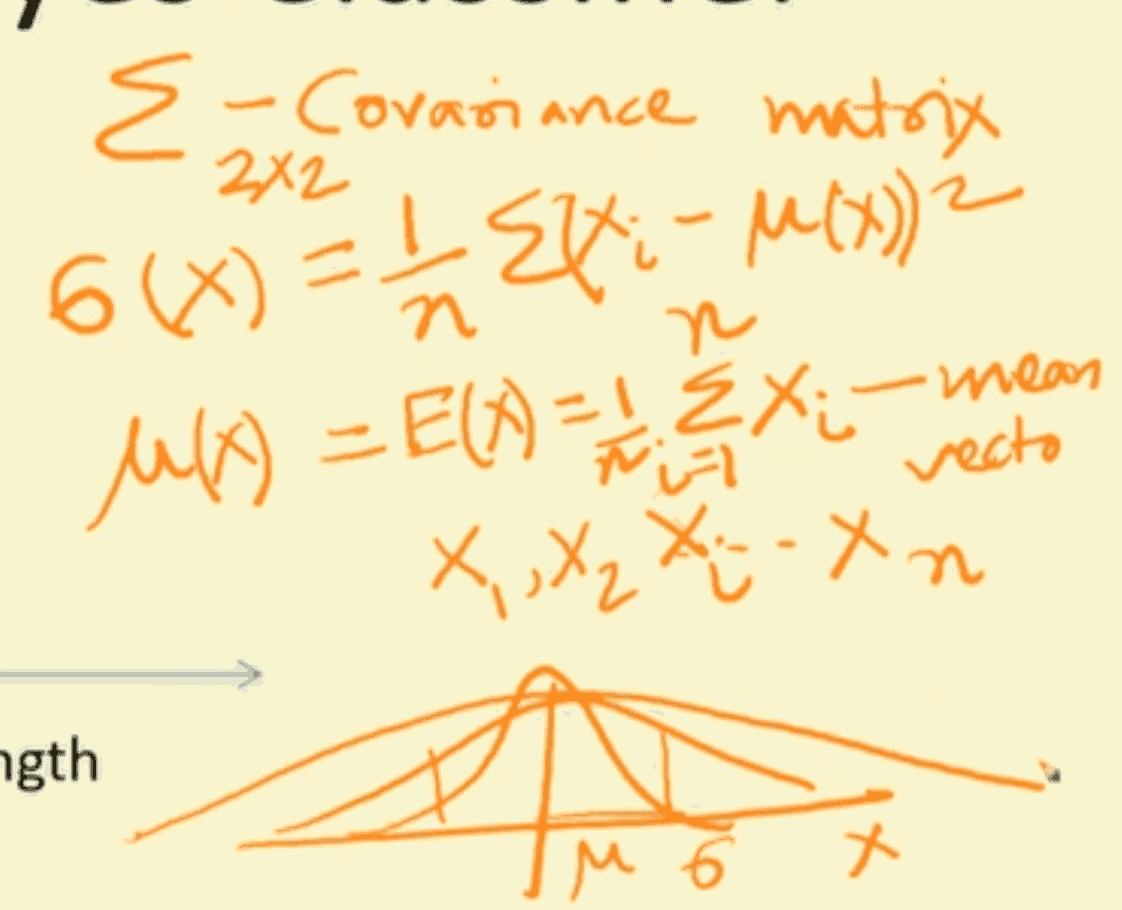 Σ - Covariance matrix
2x2
σ(x) = 1/n Σ(xi - μ(x))²
μ(x) = E(x) = 1/n Σ i=1 n xi - mean
vecto
x1, x2 xi - - xn
ngth
μ σ x